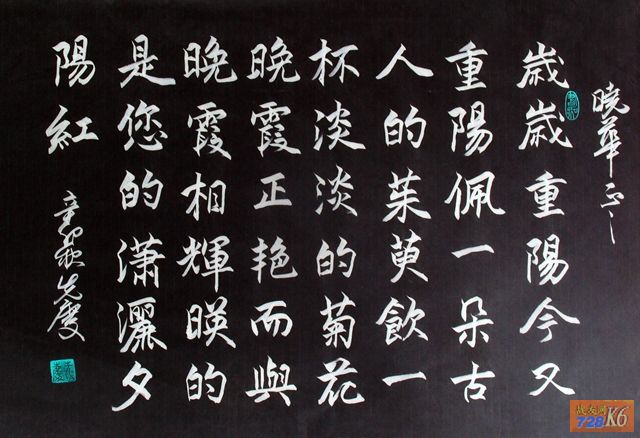 曉華正之
歳歳重陽今又
重陽佩一朵古
人的茱萸飲一
杯淡淡的菊花
晚霞正艳而與
晚霞相輝暎的
是您的潇灑夕
陽紅
辛卯秋先慶
战友网
728K6